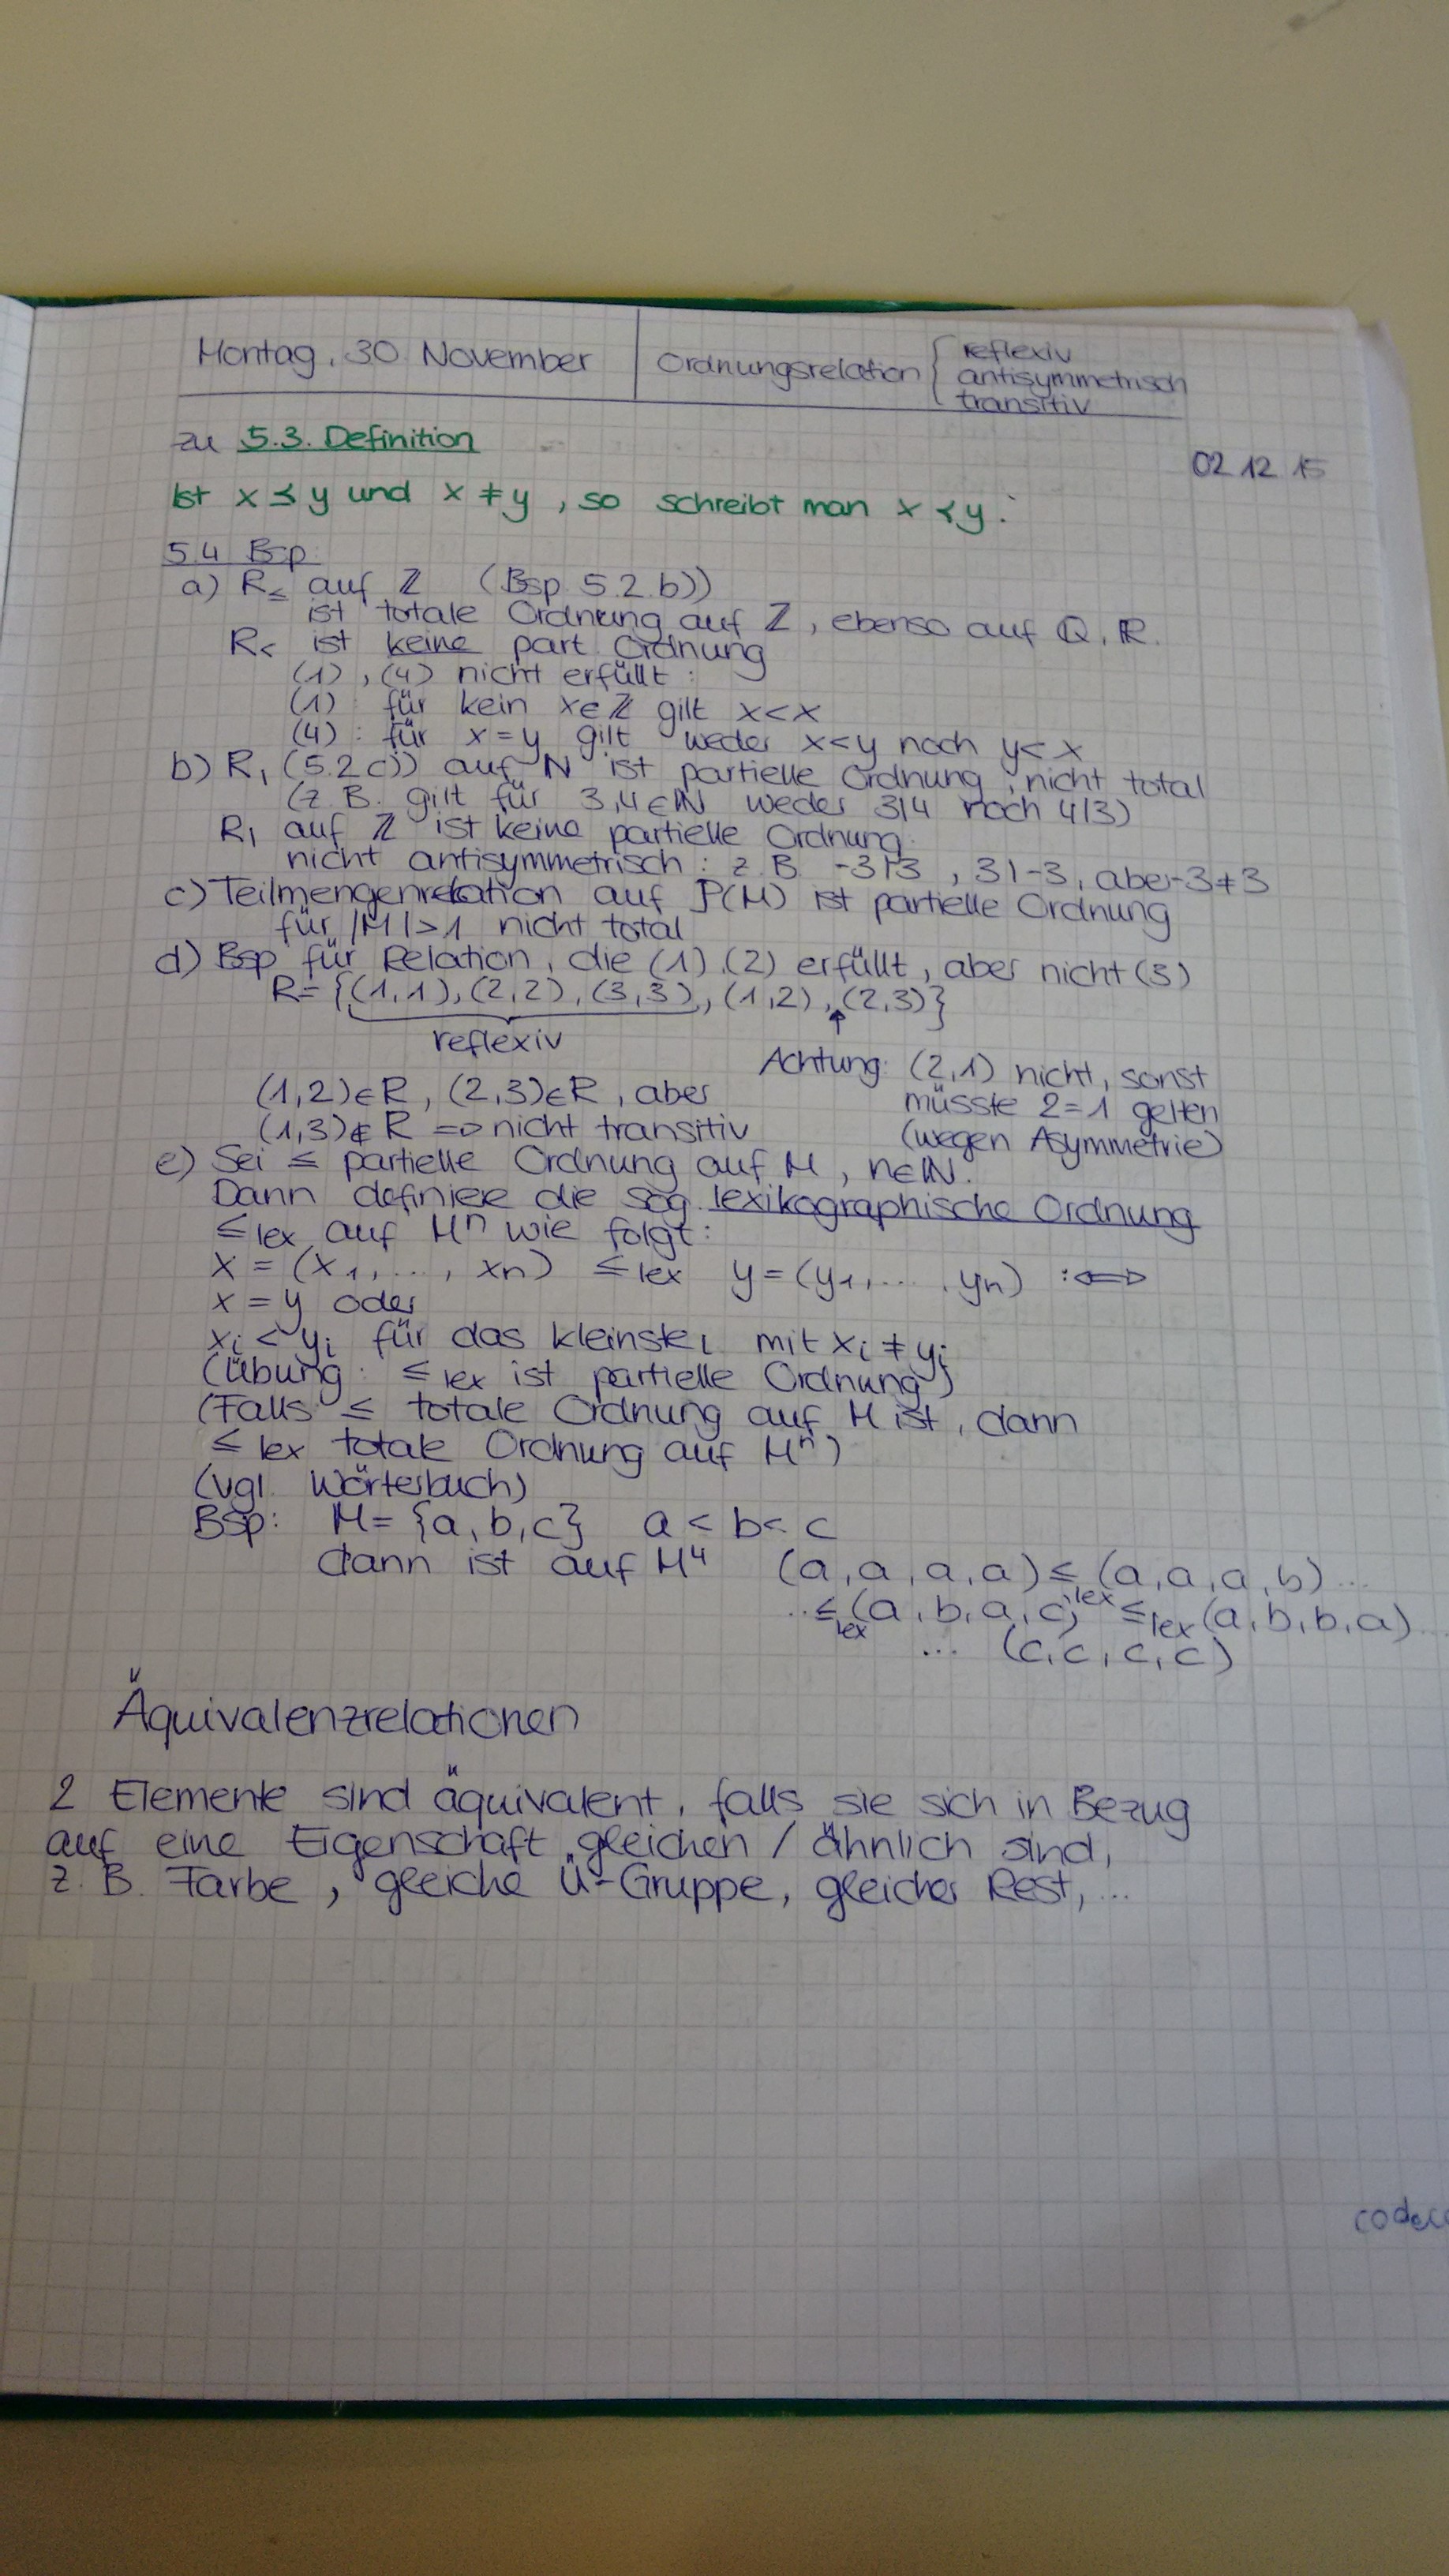 Montag, 30. November
Ordnungsrelation { reflexiv
antisymmetrisch
transitiv
zu 5.3. Definition
02.12.15
Ist x ≼ y und x ≠ y, so schreibt man x ≺ y.
5.4 Bsp.
a) R≤ auf ℤ (Bsp. 5.2.b))
ist totale Ordnung auf ℤ, ebenso auf ℚ, ℝ.
R< ist keine part. Ordnung
(1), (4) nicht erfüllt:
(1): für kein x∈ℤ gilt x<x
(4): für x=y gilt weder x<y noch y<x
b) R| (5.2c)) auf ℕ ist partielle Ordnung, nicht total
(z.B. gilt für 3,4∈ℕ weder 3|4 noch 4|3)
R| auf ℤ ist keine partielle Ordnung.
nicht antisymmetrisch: z.B. -3|3, 3|-3, aber -3≠3
c) Teilmengenrelation auf P(M) ist partielle Ordnung
für |M|>1 nicht total
d) Bsp für Relation, die (1),(2) erfüllt, aber nicht (3)
R={(1,1),(2,2),(3,3),(1,2),(2,3)}
reflexiv
Achtung: (2,1) nicht, sonst
müsste 2=1 gelten
(wegen Asymmetrie)
(1,2)∈R, (2,3)∈R, aber
(1,3)∉R => nicht transitiv
e) Sei ≤ partielle Ordnung auf M, n∈ℕ.
Dann definiere die sog. lexikographische Ordnung
≤lex auf Mⁿ wie folgt:
x = (x₁,..., xn) ≤lex y=(y₁,..., yn) :<=>
x = y oder
xi < yi für das kleinste i mit xi ≠ yi
(Übung: ≤lex ist partielle Ordnung)
(Falls ≤ totale Ordnung auf M ist, dann
≤lex totale Ordnung auf Mⁿ)
(vgl. Wörterbuch)
Bsp: M={a,b,c} a<b<c
dann ist auf M⁴ (a,a,a,a) ≤lex (a,a,a,b)...
..≤lex (a,b,a,c) ≤lex (a,b,b,a)...
... (c,c,c,c)
Äquivalenzrelationen
2 Elemente sind äquivalent, falls sie sich in Bezug
auf eine Eigenschaft gleichen / ähnlich sind,
z.B. Farbe, gleiche Ü-Gruppe, gleicher Rest,...